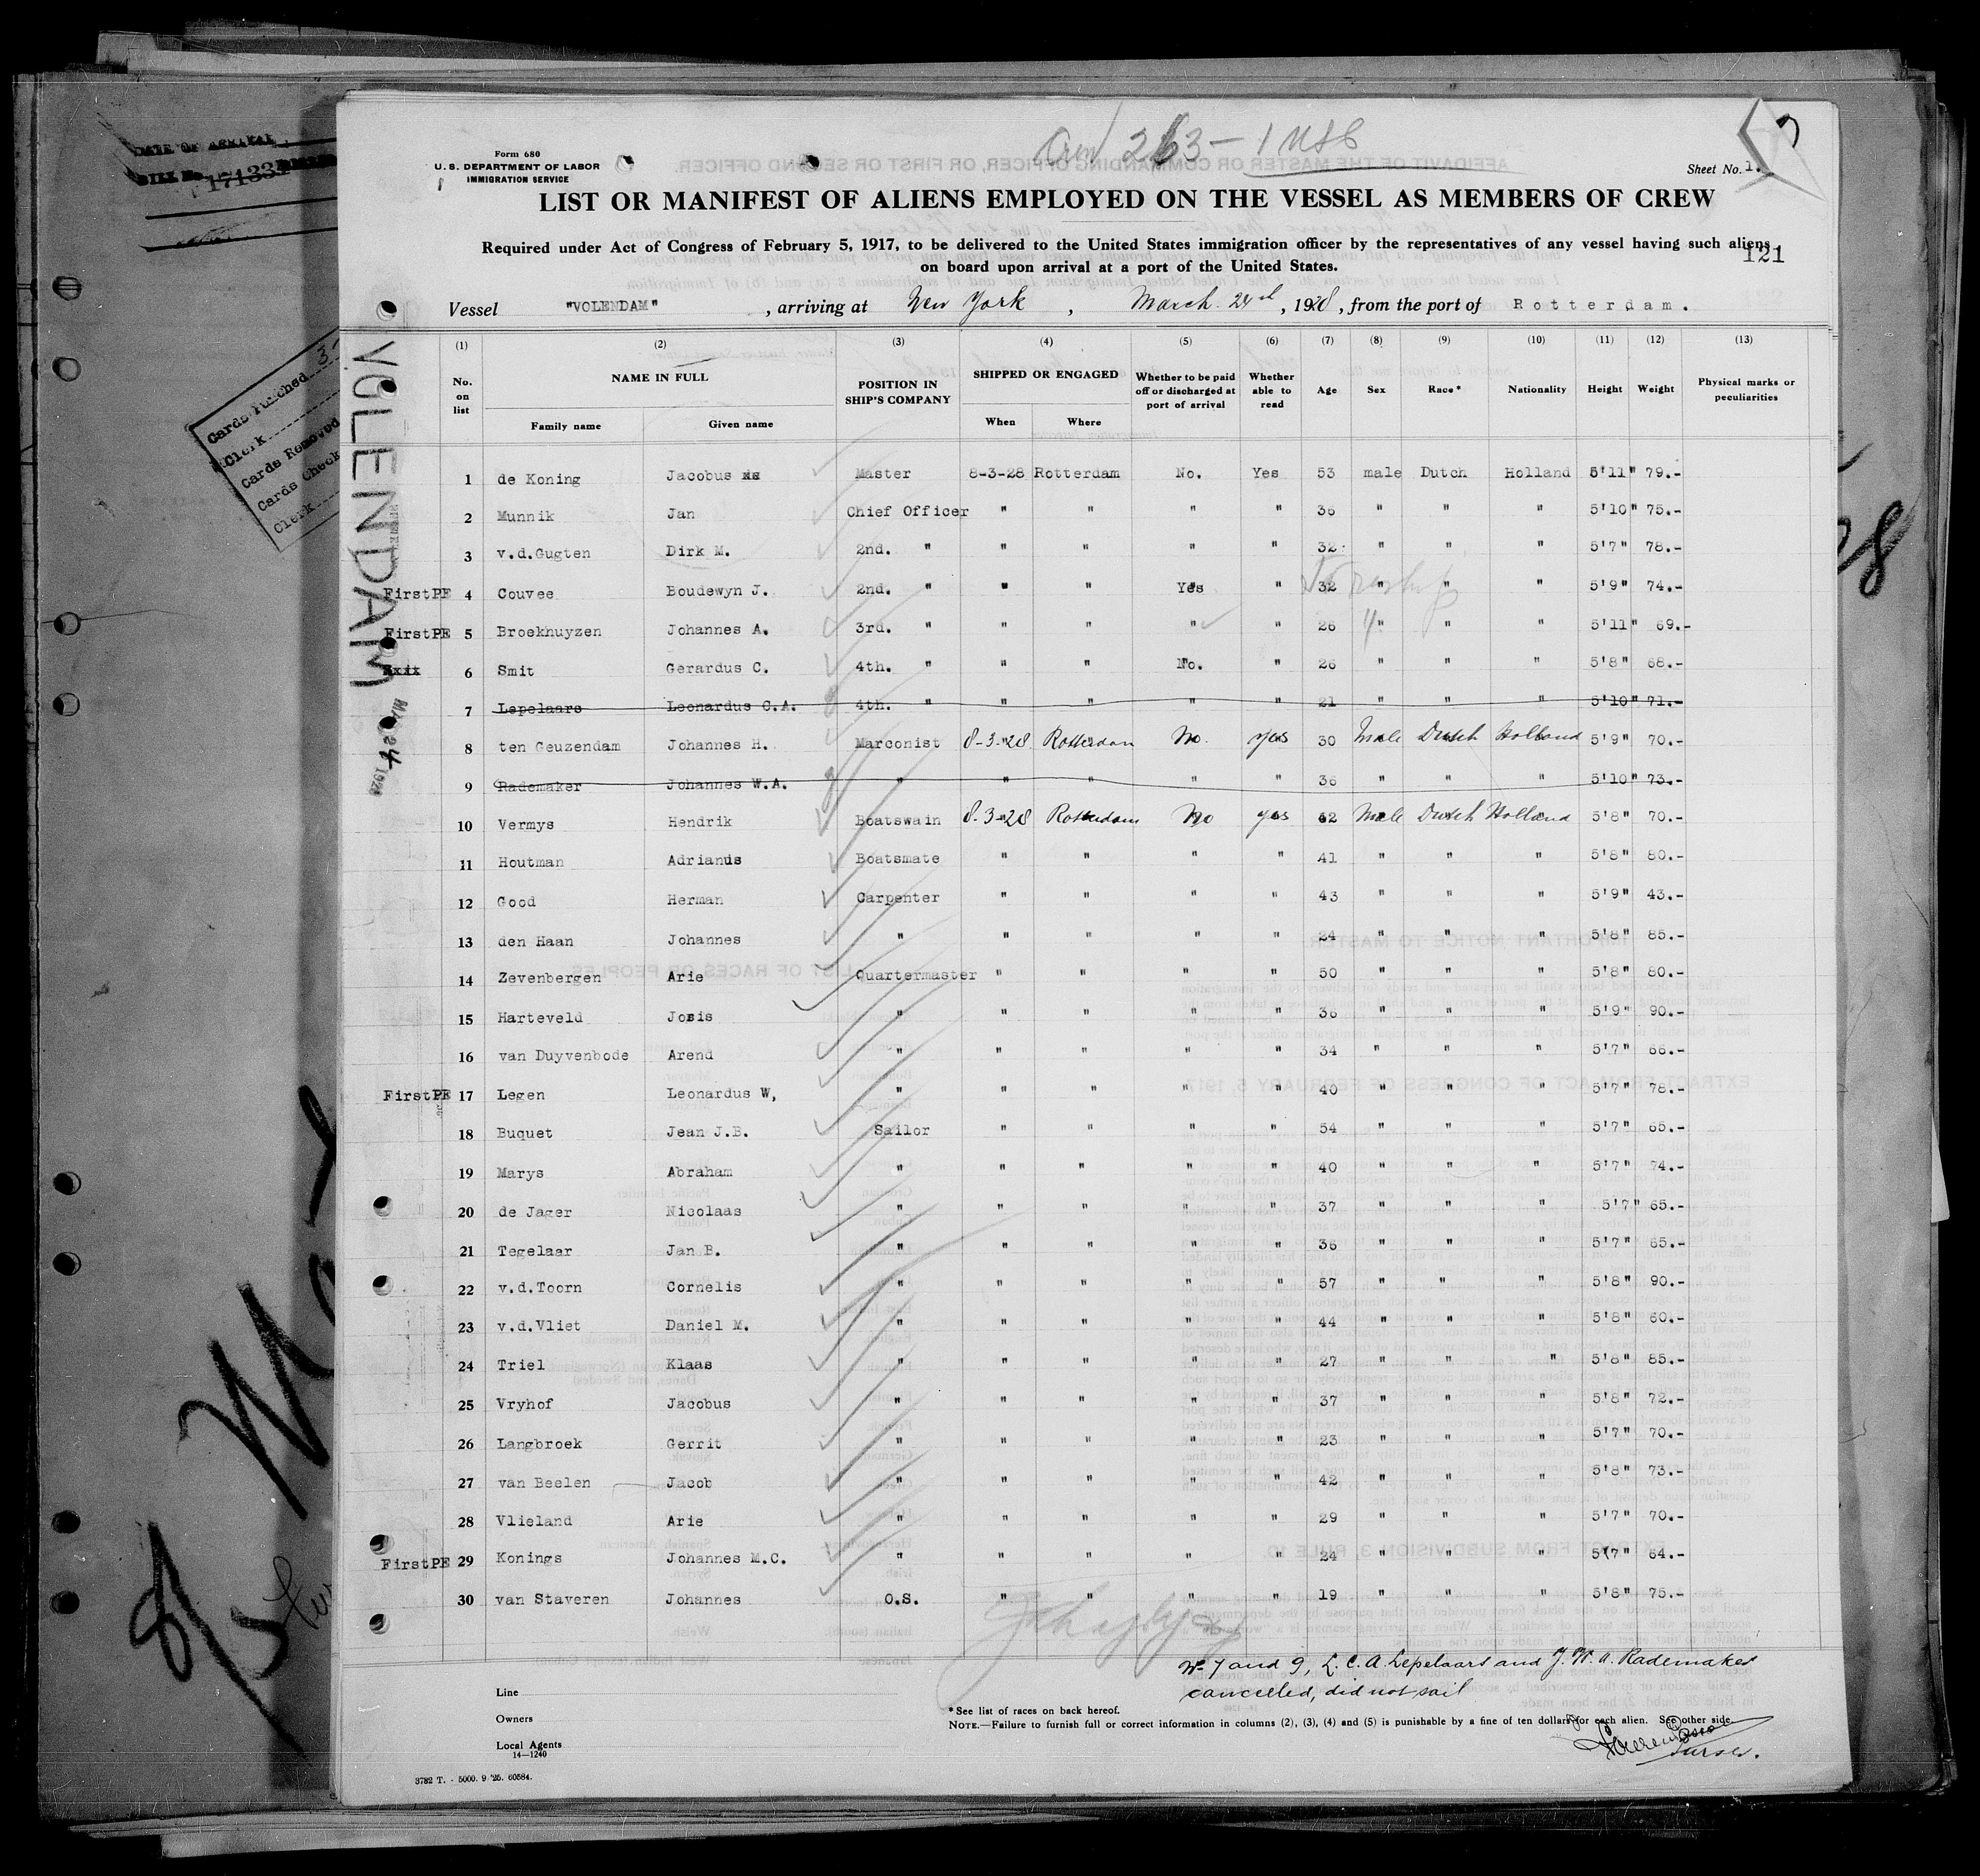 DATE OF ARRIVAL
FILE No. 17133
Cards Punched
Clerk
Cards Removed
Cards Check
Clerk
VOLENDAM
Crew 263 - 1 USC
Form 680
U. S. DEPARTMENT OF LABOR
IMMIGRATION SERVICE
Sheet No. 1.
LIST OR MANIFEST OF ALIENS EMPLOYED ON THE VESSEL AS MEMBERS OF CREW
Required under Act of Congress of February 5, 1917, to be delivered to the United States immigration officer by the representatives of any vessel having such aliens
on board upon arrival at a port of the United States.
121
Vessel "VOLENDAM", arriving at New York, March. 24th, 1928, from the port of Rotterdam.
(1) (2) (3) (4) (5) (6) (7) (8) (9) (10) (11) (12) (13)
No. on list NAME IN FULL POSITION IN SHIP'S COMPANY SHIPPED OR ENGAGED Whether to be paid off or discharged at port of arrival Whether able to read Age Sex Race* Nationality Height Weight Physical marks or peculiarities
Family name Given name When Where
1 de Koning Jacobus Master 8-3-28 Rotterdam No. Yes 53 male Dutch Holland 5'11" 79.-
2 Munnik Jan Chief Officer " " " " 36 " " " 5'10" 75.-
3 v.d.Gugten Dirk M. 2nd. " " " " " 32 " " " 5'7" 78.-
FirstPE 4 Couvee Boudewyn J. 2nd. " " " Yes " 32 " " " 5'9" 74.-
FirstPE 5 Broekhuyzen Johannes A. 3rd. " " " " " 26 " " " 5'11" 69.-
6 Smit Gerardus C. 4th. " " " No. " 26 " " " 5'8" 68.-
7 Lepelaars Leonardus C.A. 4th. " " " " " 21 " " " 5'10" 71.-
8 ten Geuzendam Johannes H. Marconist 8-3-28 Rotterdam No. yes 30 Male Dutch Holland 5'9" 70.-
9 Rademaker Johannes W.A. " " " " " 36 " " " 5'10" 73.-
10 Vermys Hendrik Boatswain 8-3-28 Rotterdam No yes 42 Male Dutch Holland 5'8" 70.-
11 Houtman Adrianus Boatsmate " " " " 41 " " " 5'8" 80.-
12 Good Herman Carpenter " " " " 43 " " " 5'9" 43.-
13 den Haan Johannes " " " " " 24 " " " 5'8" 85.-
14 Zevenbergen Arie Quartermaster " " " " 50 " " " 5'8" 80.-
15 Harteveld Josis " " " " " 36 " " " 5'9" 90.-
16 van Duyvenbode Arend " " " " " 34 " " " 5'7" 66.-
FirstPE 17 Legen Leonardus W, " " " " " 40 " " " 5'7" 78.-
18 Buquet Jean J.B. Sailor " " " " 54 " " " 5'7" 65.-
19 Marys Abraham " " " " " 40 " " " 5'7" 74.-
20 de Jager Nicolaas " " " " " 37 " " " 5'7" 65.-
21 Tegelaar Jan B. " " " " " 36 " " " 5'7" 65.-
22 v.d.Toorn Cornelis " " " " " 57 " " " 5'8" 90.-
23 v.d.Vliet Daniel M. " " " " " 44 " " " 5'8" 60.-
24 Triel Klaas " " " " " 27 " " " 5'8" 85.-
25 Vryhof Jacobus " " " " " 37 " " " 5'8" 72.-
26 Langbroek Gerrit " " " " " 23 " " " 5'7" 70.-
27 van Beelen Jacob " " " " " 42 " " " 5'8" 73.-
28 Vlieland Arie " " " " " 29 " " " 5'7" 70.-
FirstPE 29 Konings Johannes M.C. " " " " " 24 " " " 5'7" 64.-
30 van Staveren Johannes O.S. " " " " 19 " " " 5'8" 75.-
No 7 and 9, L. C. A. Lepelaars and J. W. A. Rademaker
cancelled, did not sail
Line
Owners
Local Agents
14—1240
* See list of races on back hereof.
NOTE.—Failure to furnish full or correct information in columns (2), (3), (4) and (5) is punishable by a fine of ten dollars for each alien. See other side.
Purser.
3782 T. - 5000. 9 '25. 60584.